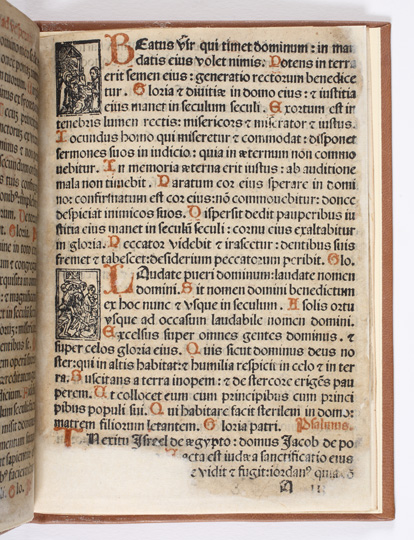 BEatus vir qui timet dominum: in man
datis eius volet nimis. Potens in terra
erit semen eius: generatio rectorum benedice
tur. Gloria ⁊ divitiæ in domo eius: ⁊ iustitia
eius manet in seculum seculi. Exortum est in
tenebris lumen rectis: misericors ⁊ miserator ⁊ iustus.
Iocundus homo qui miseretur ⁊ commodat: disponet
sermones suos in iudicio: quia in æternum non commo
vebitur. In memoria æterna erit iustus: ab auditione
mala non timebit. Paratum cor eius sperare in domi
no: confirmatum est cor eius: nõ commovebitur: donec
despiciat inimicos suos. Dispersit dedit pauperibus iu
stitia eius manet in seculũ seculi: cornu eius exaltabitur
in gloria. Peccator videbit ⁊ irascetur: dentibus suis
fremet ⁊ tabescet: desiderium peccatorum peribit. Glo.
LAudate pueri dominum: laudate nomen
domini. Sit nomen domini benedictum
ex hoc nunc ⁊ vsque in seculum. A solis ortu
vsque ad occasum laudabile nomen domini.
Excelsus super omnes gentes dominus. ⁊
super celos gloria eius. Quis sicut dominus deus no
ster: qui in altis habitat: ⁊ humilia respicit in celo ⁊ in ter
ra. Suscitans a terra inopem: ⁊ de stercore erigẽs pau
perem. Ut collocet eum cum principibus cum princi
pibus populi sui. Qui habitare facit sterilem in domo:
matrem filiorum letantem. Gloria patri. Psalmus.
IN exitu Israel de ægypto: domus Jacob de po
acta est iudæa sanctificatio eius
vidit ⁊ fugit: iordan